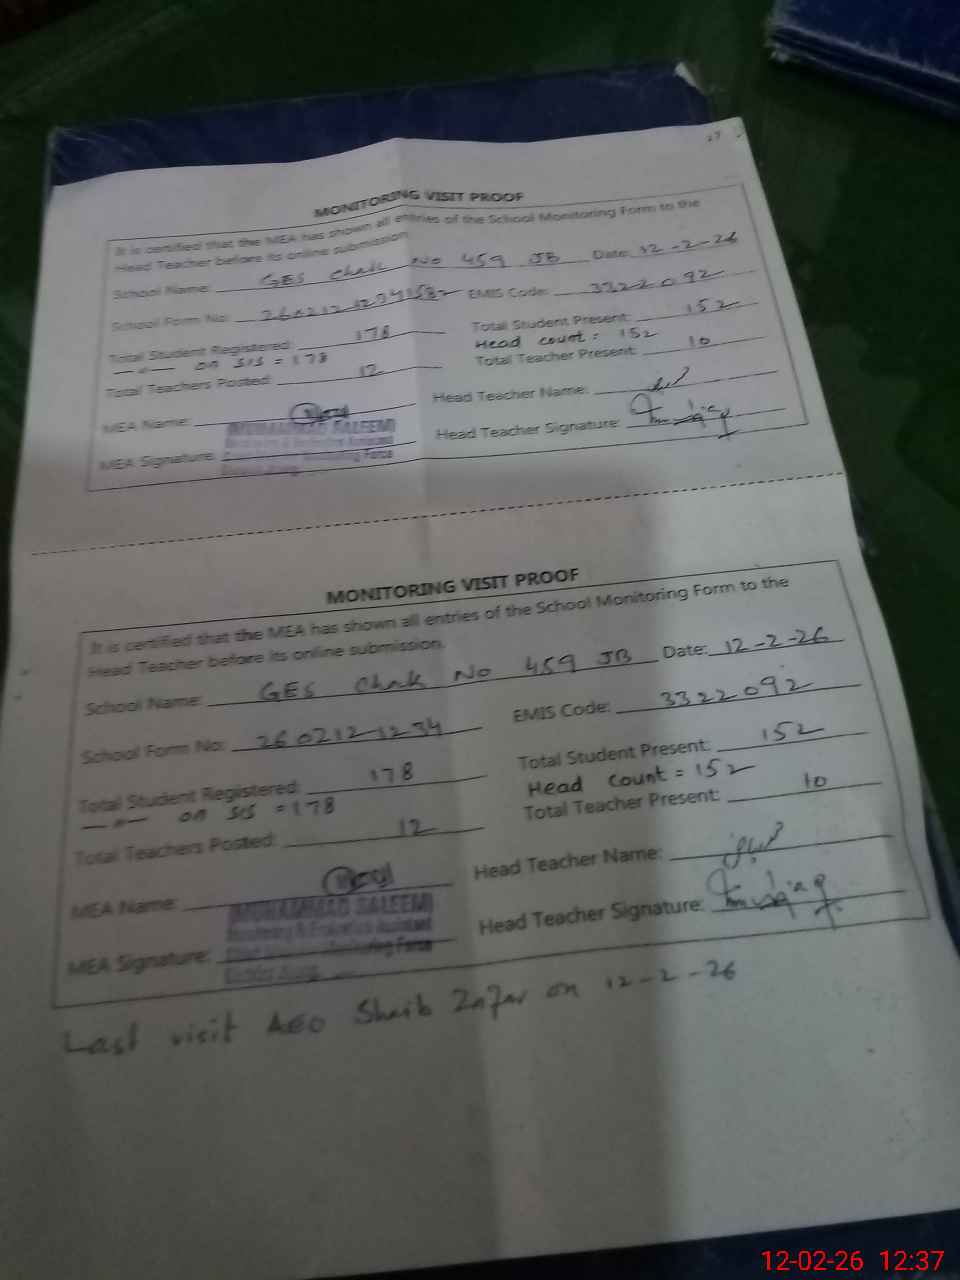 27
MONITORING VISIT PROOF
It is certified that the MEA has shown all entries of the School Monitoring Form to the
Head Teacher before its online submission.
School Name: GES Chak No 459 JB Date: 12-2-26
School Form No: EMIS Code: 3322092
Total Student Registered: 178 Total Student Present: 152
—〃— on SIS = 178 Head count = 152
Total Teachers Posted: 12 Total Teacher Present: 10
MEA Name: Head Teacher Name:
MUHAMMAD SALEEM
Monitoring & Evaluation Assistant
MEA Signature: Monitoring Force Head Teacher Signature:
MONITORING VISIT PROOF
It is certified that the MEA has shown all entries of the School Monitoring Form to the
Head Teacher before its online submission.
School Name: GES Chak No 459 JB Date: 12-2-26
School Form No: 260212-1234 EMIS Code: 3322092
Total Student Registered: 178 Total Student Present: 152
—〃— on SIS = 178 Head count = 152
Total Teachers Posted: 12 Total Teacher Present: 10
MEA Name: Head Teacher Name:
MUHAMMAD SALEEM
Monitoring & Evaluation Assistant
MEA Signature: Monitoring Force Head Teacher Signature:
Last visit AEO Shaib Zafar on 12-2-26
12-02-26 12:37